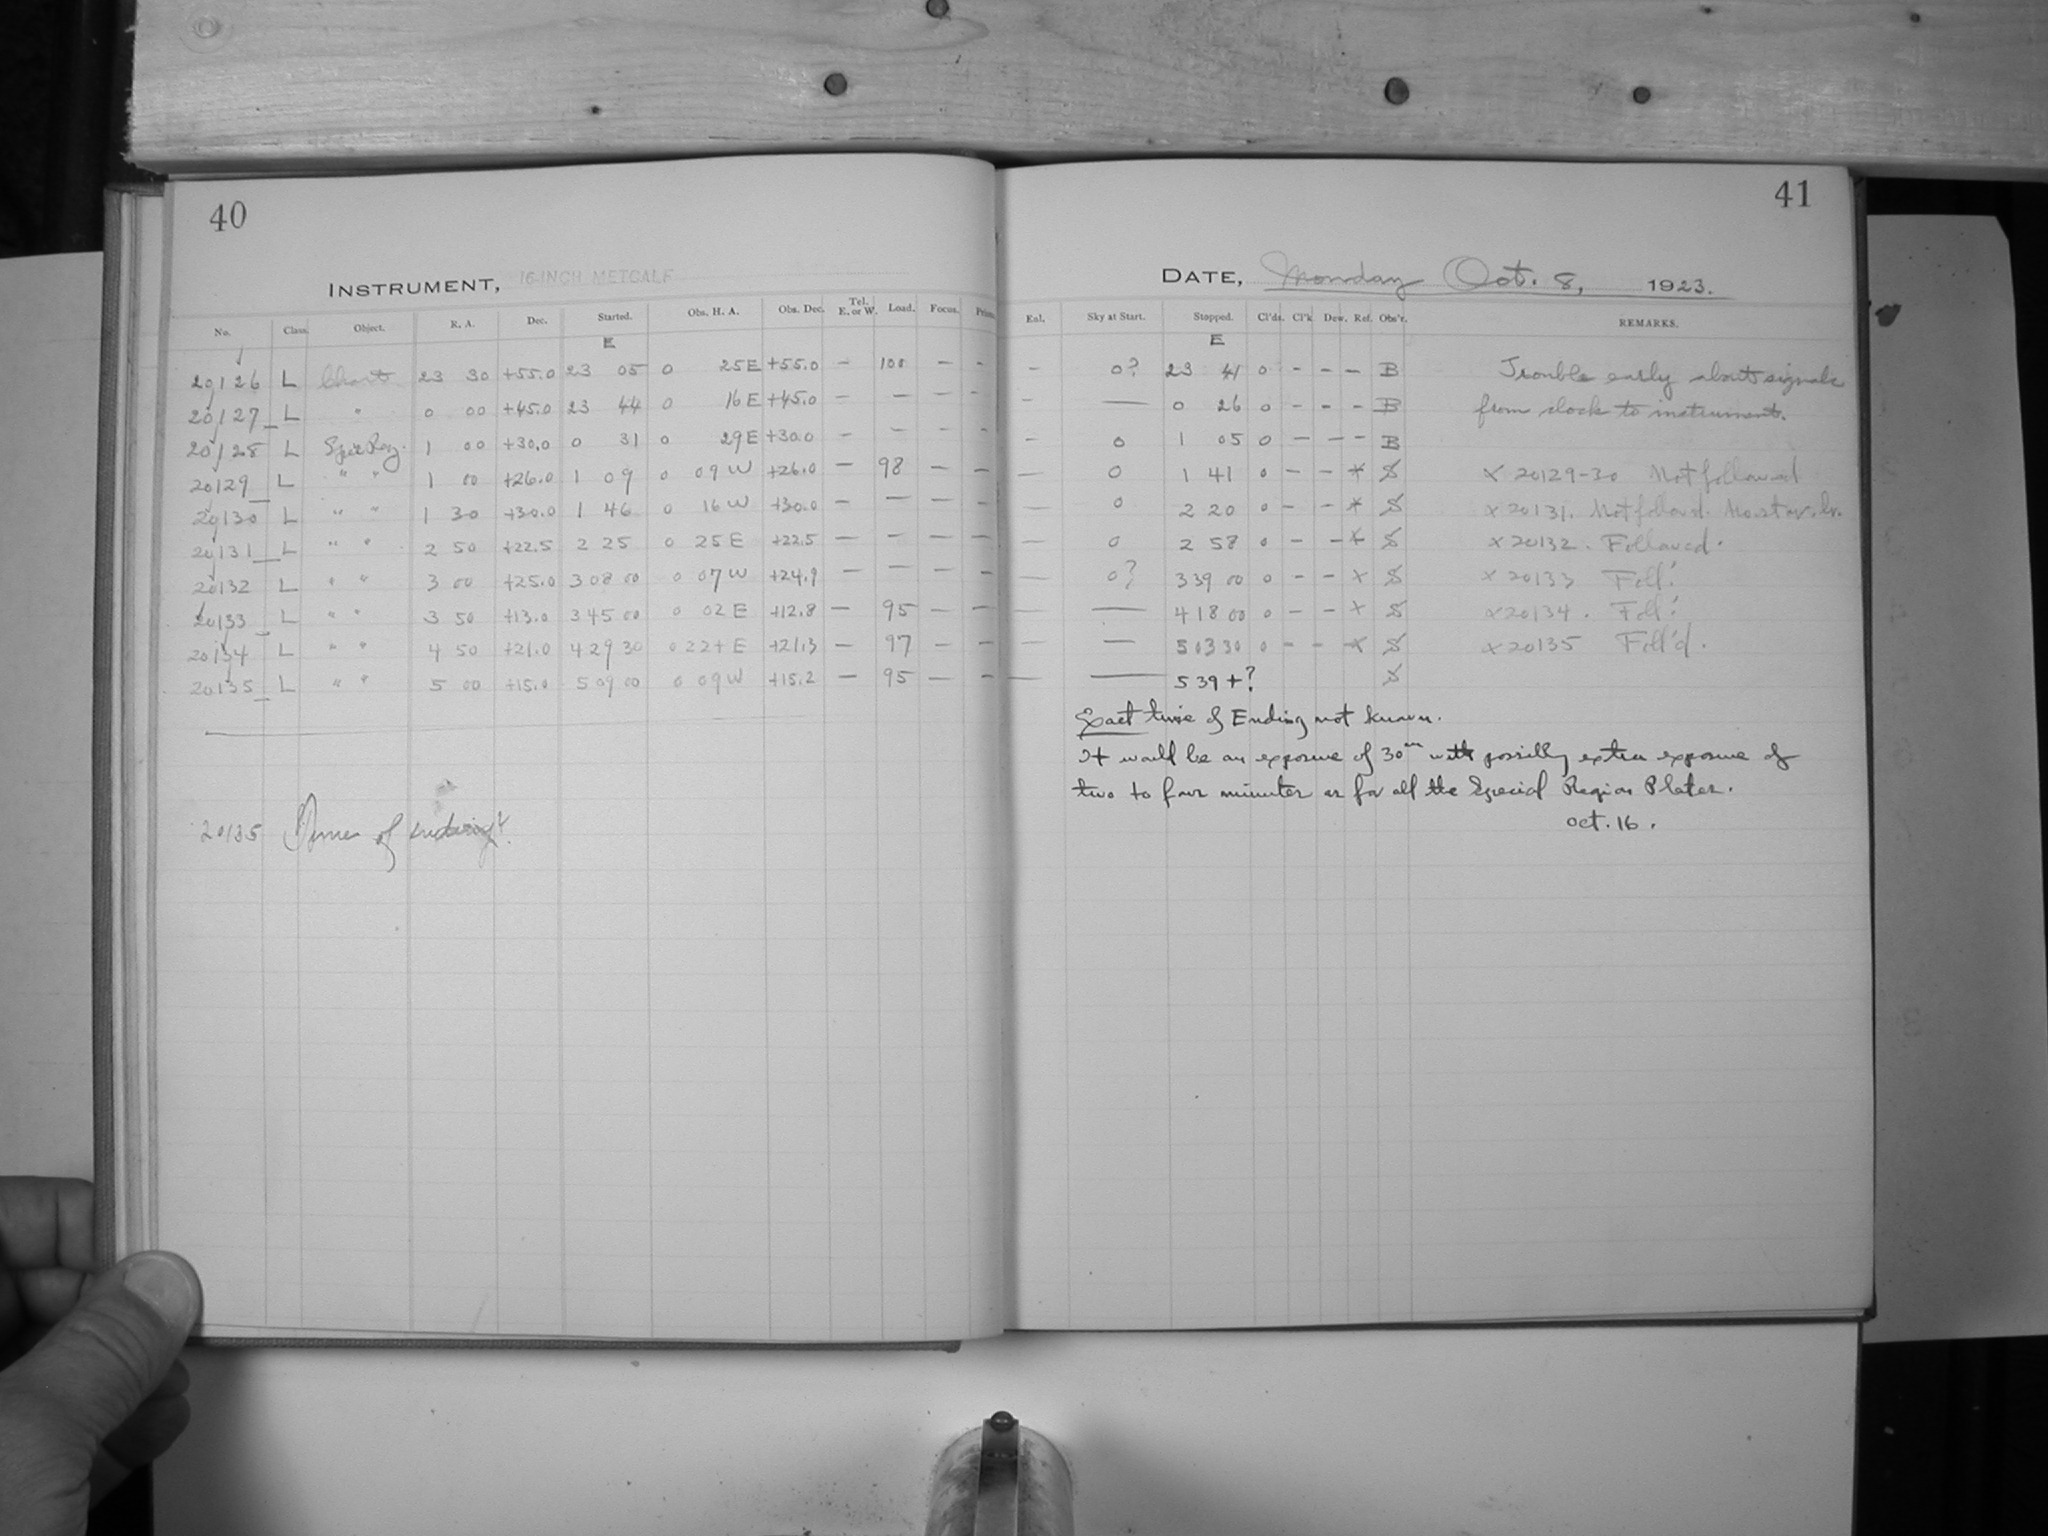 40
INSTRUMENT, 16-INCH METCALF
No. Class. Object. R. A. Dec. Started. Obs. H. A. Obs. Dec. Tel. E. or W. Load. Focus. Prism
E
20126 L Chart 23 30 +55.0 23 05 0 25E +55.0 — 100 — -
20127 L " 0 00 +45.0 23 44 0 16E +45.0 — — — -
20128 L Spec Reg. 1 00 +30.0 0 31 0 29E +30.0 — — — -
20129 L " " 1 00 +26.0 1 09 0 09 W +26.0 — 98 — —
20130 L " " 1 30 +30.0 1 46 0 16 W +30.0 — — — —
20131 L " " 2 50 +22.5 2 25 0 25 E +22.5 — — — —
20132 L " " 3 00 +25.0 3 08 00 0 07 W +24.9 — — — —
20133 L " " 3 50 +13.0 3 45 00 0 02 E +12.8 — 95 — —
20134 L " " 4 50 +21.0 4 29 30 0 22+ E +21.3 — 97 — —
20135 L " " 5 00 +15.0 5 09 00 0 09 W +15.2 — 95 — —
20135 of ending?
41
DATE, Monday Oct. 8, 1923.
Enl. Sky at Start. Stopped. Cl'ds. Cl'k Dew. Ref. Obs'r. REMARKS.
E
- 0? 23 41 0 - - — B Trouble early about signals
- — 0 26 0 - - - B from clock to instrument.
- 0 1 05 0 — — - B
— 0 1 41 0 - - * S x 20129-30 Not followed
— 0 2 20 0 - - * S x 20131. Not follow'd.
— 0 2 58 0 - - x S x 20132. Followed.
— 0? 3 39 00 0 - - x S x 20133 Foll'
— — 4 18 00 0 - - x S x 20134. Foll'
— — 5 03 30 0 - - x S x 20135 Foll'd.
— — 5 39 +? S
Exact time of Ending not known.
It would be an exposure of 30m with possibly extra exposure of
two to four minutes as for all the Special Region Plates.
Oct. 16.